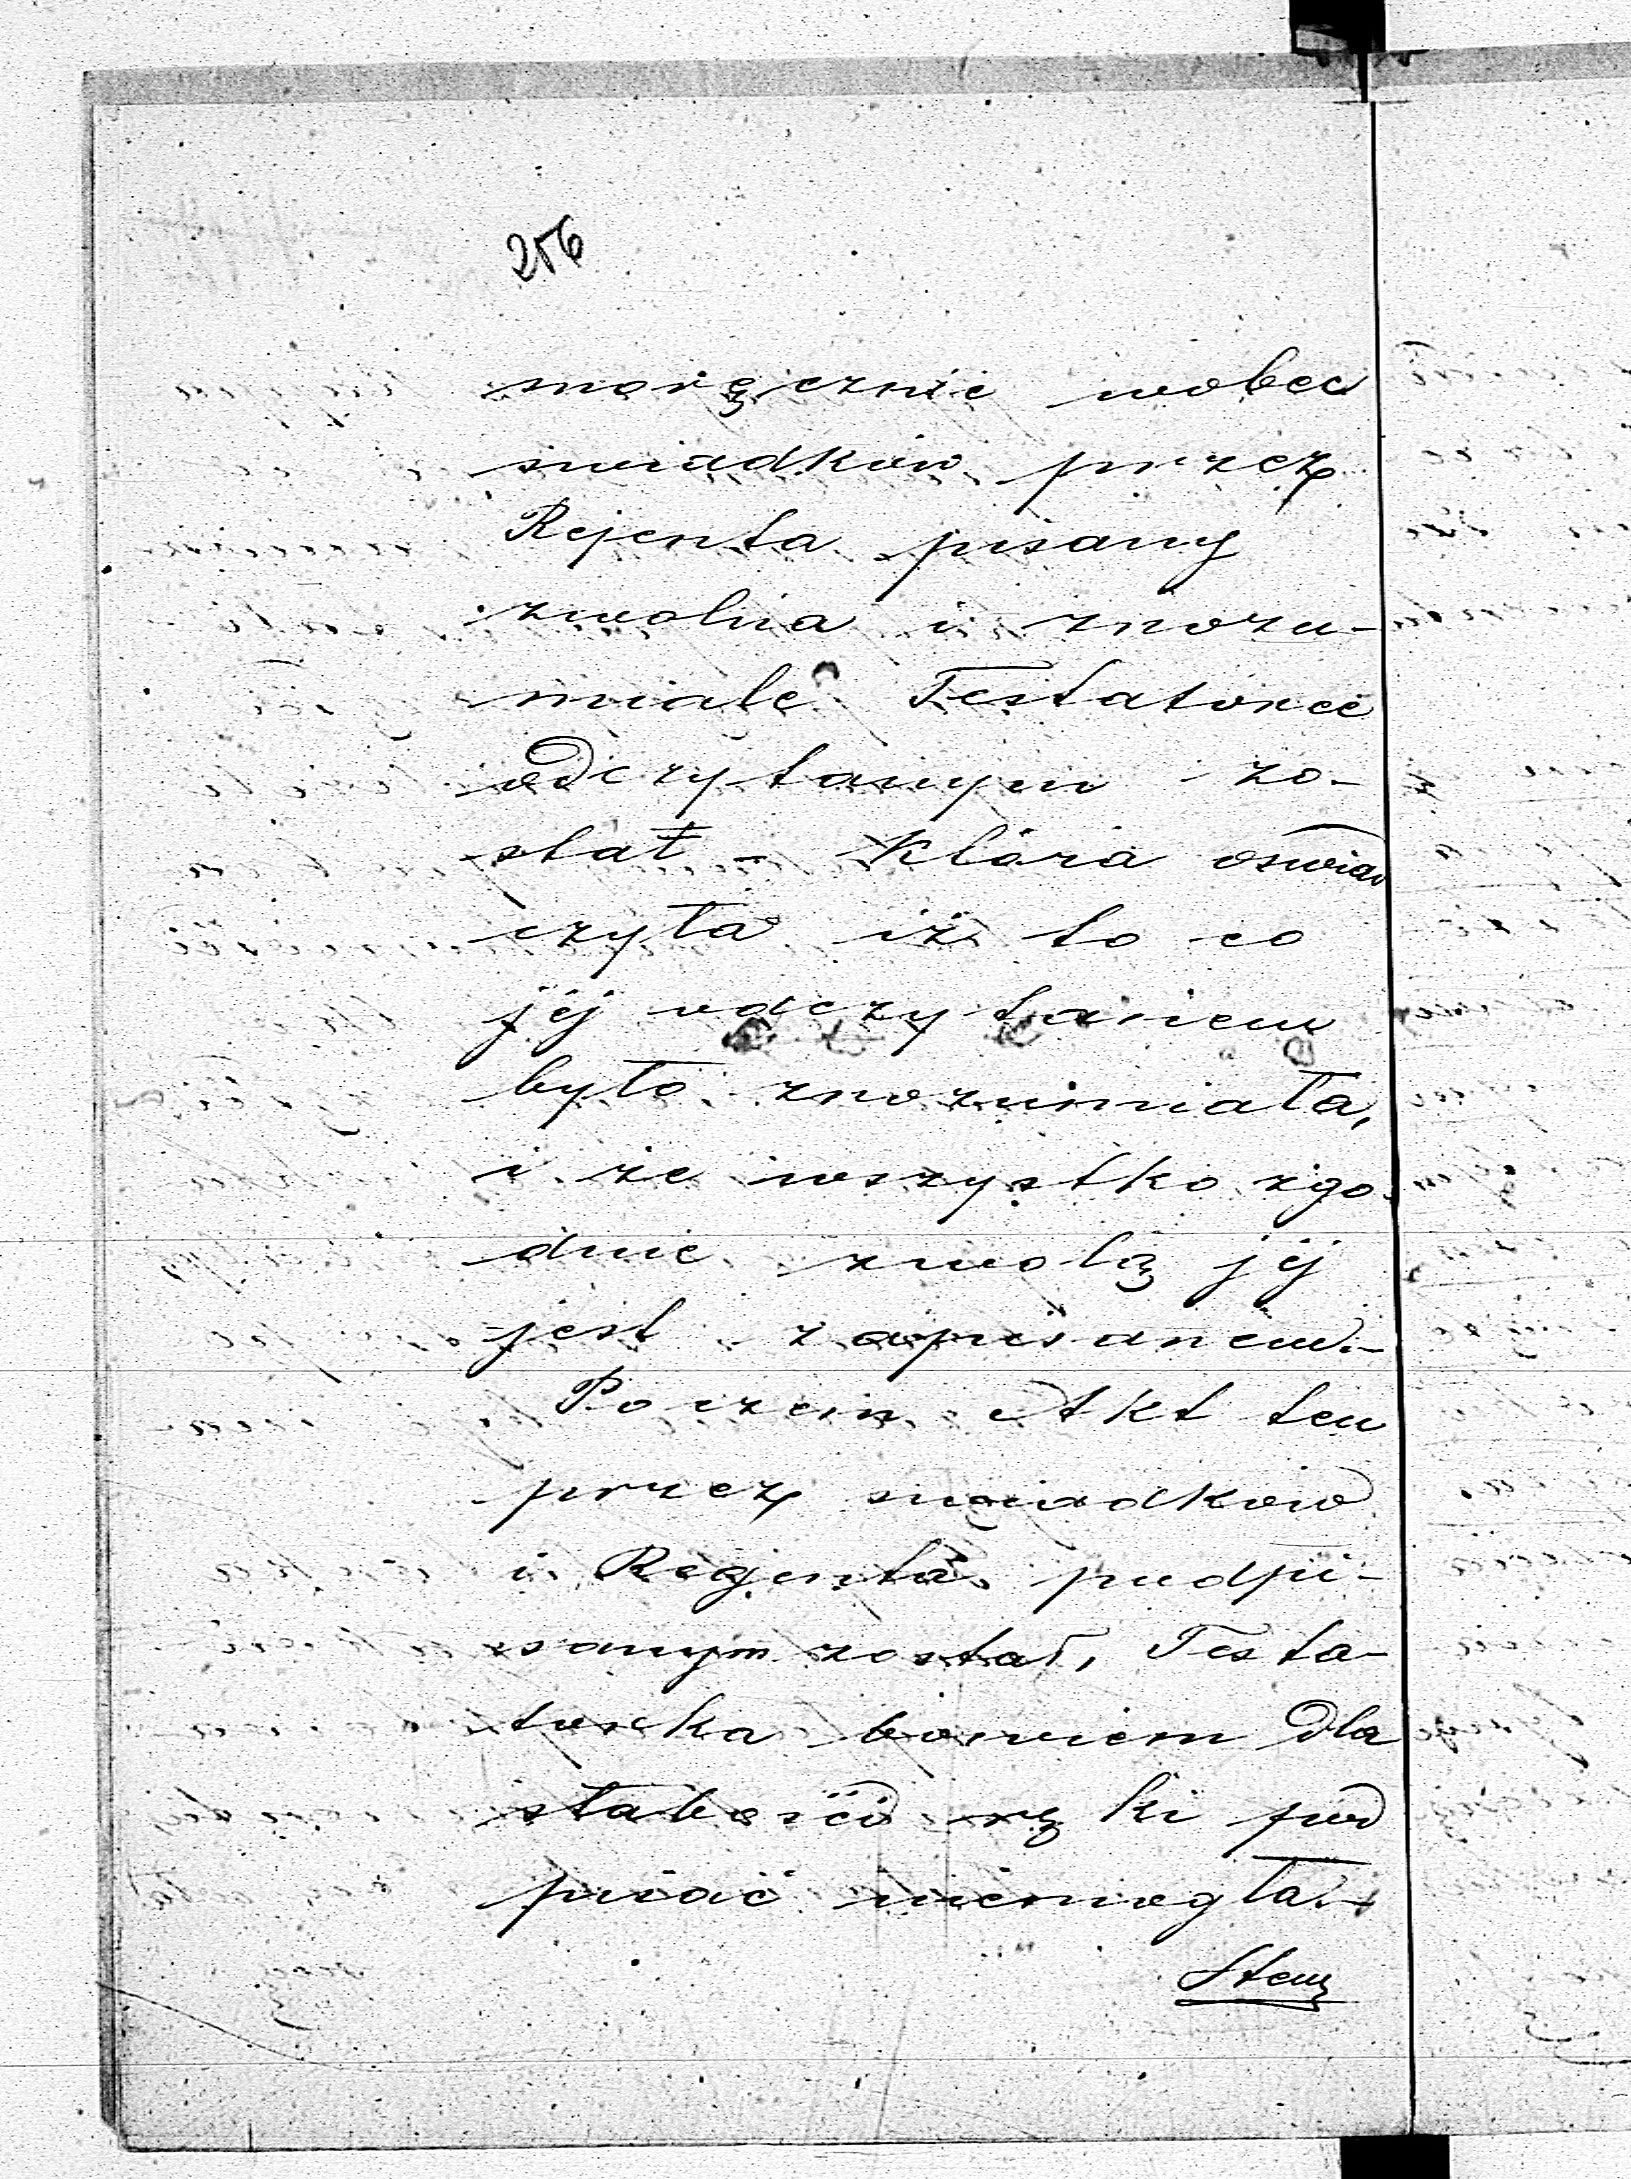 256
noręcznie wobec
swiadków przez
Rejenta pisany
zwolna i zrozu-
miale Testatorce
odczytanym zo-
stał – Która oswiad
czyła iż to co
jéj odczytaniem
było zrozumiała,
i że wszystko zgo-
dnie zwolą jéj
jest zapisanem.–
Poczem Akt ten
przez swiadków
i Rejenta podpi-
sanym został, Testa-
torka bowiem dla
słabości ręki pod
pisać niemogła.–
Stem